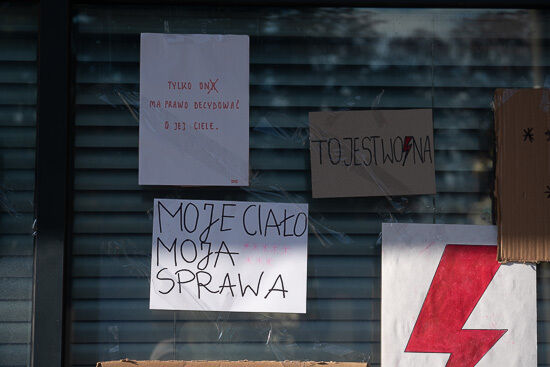 TYLKO ONA
MA PRAWO DECYDOWAĆ
O JEJ CIELE.
TO JEST WOJNA
MOJE CIAŁO
MOJA
SPRAWA